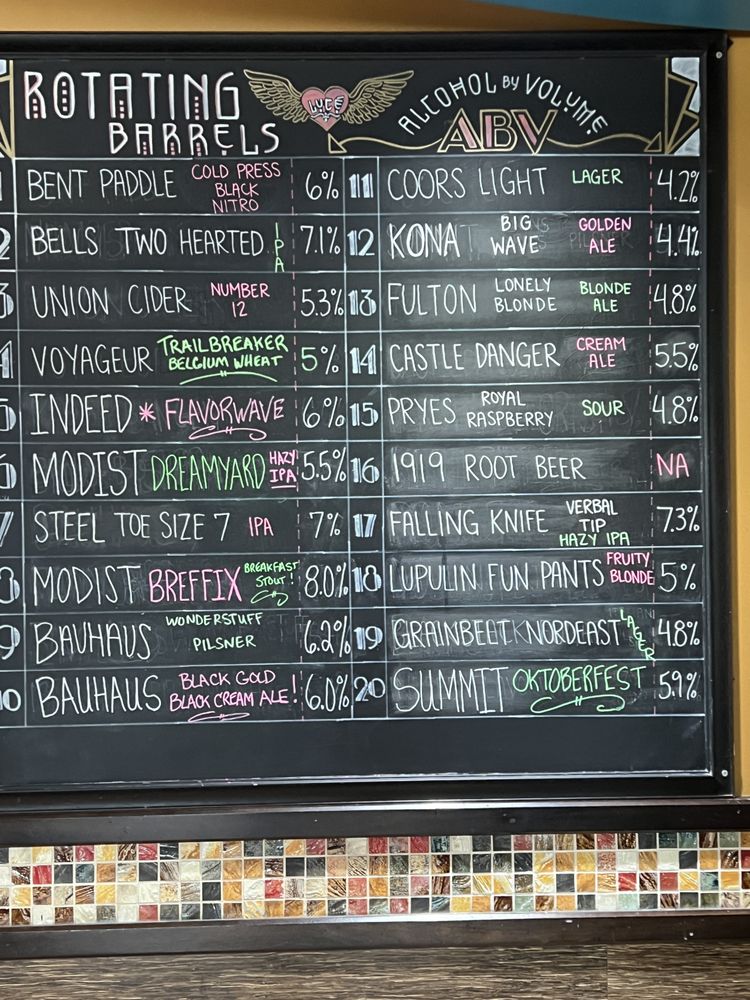 ROTATING
BARRELS
LUCÉ
ALCOHOL BY VOLUME
ABV
BENT PADDLE COLD PRESS BLACK NITRO 6%
BELLS TWO HEARTED IPA 7.1%
UNION CIDER NUMBER 12 5.3%
VOYAGEUR TRAILBREAKER BELGIUM WHEAT 5%
INDEED * FLAVORWAVE 6%
MODIST DREAMYARD HAZY IPA 5.5%
STEEL TOE SIZE 7 IPA 7%
MODIST BREFFIX BREAKFAST STOUT! 8.0%
9 BAUHAUS WONDERSTUFF PILSNER 6.2%
10 BAUHAUS BLACK GOLD BLACK CREAM ALE! 6.0%
11 COORS LIGHT LAGER 4.2%
12 KONA BIG WAVE GOLDEN ALE 4.4%
13 FULTON LONELY BLONDE BLONDE ALE 4.8%
14 CASTLE DANGER CREAM ALE 5.5%
15 PRYES ROYAL RASPBERRY SOUR 4.8%
16 1919 ROOT BEER NA
17 FALLING KNIFE VERBAL TIP HAZY IPA 7.3%
18 LUPULIN FUN PANTS FRUITY BLONDE 5%
19 GRAINBELT NORDEAST LAGER 4.8%
20 SUMMIT OKTOBERFEST 5.9%